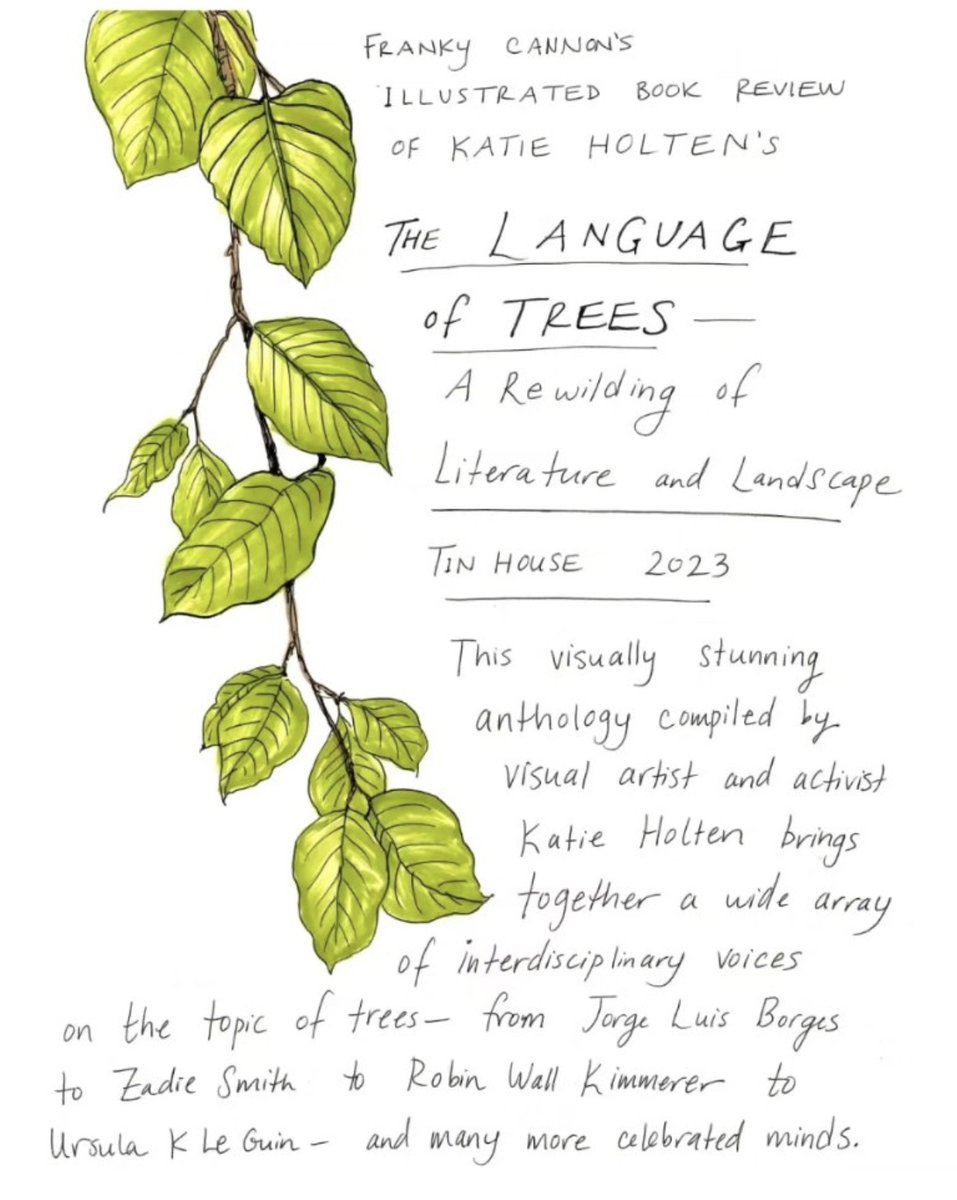 FRANKY CANNON'S
ILLUSTRATED BOOK REVIEW
OF KATIE HOLTEN'S
THE LANGUAGE
of TREES —
A Rewilding of
Literature and Landscape
TIN HOUSE 2023
This visually stunning
anthology compiled by
visual artist and activist
Katie Holten brings
together a wide array
of interdisciplinary voices
on the topic of trees — from Jorge Luis Borges
to Zadie Smith to Robin Wall Kimmerer to
Ursula K Le Guin — and many more celebrated minds.